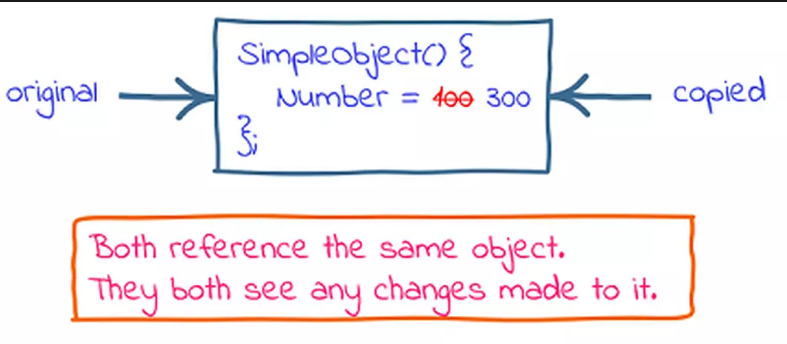 SimpleObject() {
original
Number = 400 300
copied
};
Both reference the same object.
They both see any changes made to it.